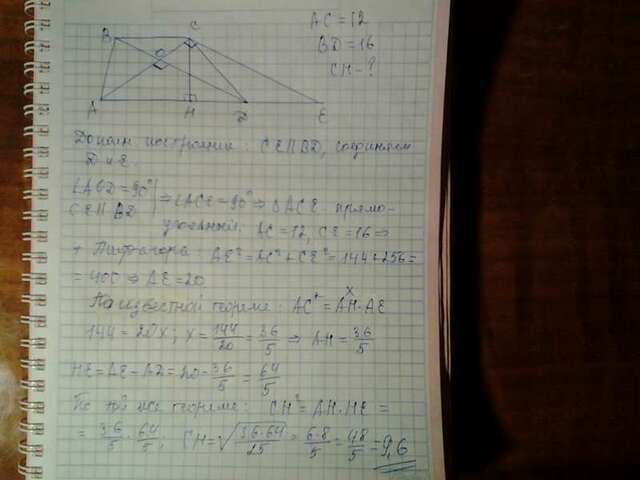 AC = 12
BD = 16
CH - ?
B C
O
A H D E
Дополн. построение: CE || BD, соединяем
D и E.
∠AOD = 90°
CE || BD | ⇒ ∠ACE = 90° ⇒ ΔACE - прямо-
угольный. AC = 12, CE = 16 ⇒
т. Пифагора: AE² = AC² + CE² = 144 + 256 =
= 400 ⇒ AE = 20
По известной теореме: AC² = AH · AE
x
144 = 20x; x = 144/20 = 36/5 ⇒ AH = 36/5
HE = AE - AD = 20 - 36/5 = 64/5
По той же теореме: CH² = AH · HE =
= 36/5 · 64/5; CH = √(36·64/25) = 6·8/5 = 48/5 = 9,6